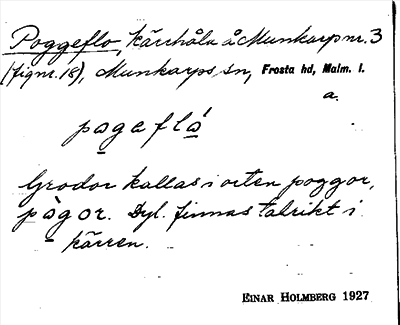 Poggeflo, kärrhåla å Munkarp nr. 3
(fig nr. 18), Munkarps sn, Frosta hd, Malm. l.
a.
pogafló
Grodor kallas i orten poggor,
pògor. Dyl. finnas talrikt i
kärren.
EINAR HOLMBERG 1927